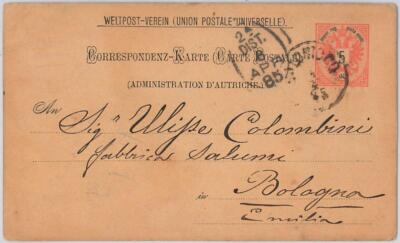 WELTPOST-VEREIN (UNION POSTALE UNIVERSELLE)
CORRESPONDENZ-KARTE CARTE POSTALE
(ADMINISTRATION D'AUTRICHE)
5
85
An
Sigr Ulisse Colombini
fabbrica salumi
in Bologna
Emilia